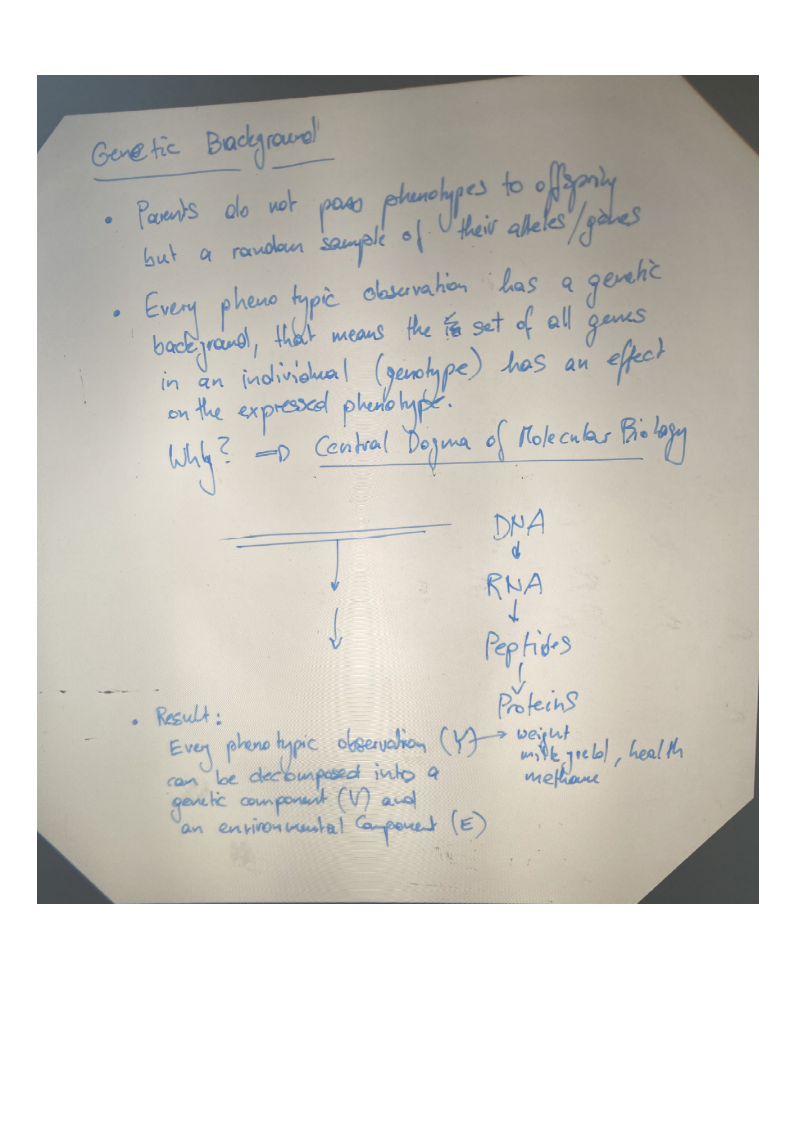 Genetic Background
• Parents do not pass phenotypes to offspring
but a random sample of their alleles/genes
• Every phenotypic observation has a genetic
background, that means the set of all genes
in an individual (genotype) has an effect
on the expressed phenotype.
Why? => Central Dogma of Molecular Biology
DNA
↓
RNA
↓
Peptides
↓
Proteins
• Result:
Every phenotypic observation (Y) → weight
milk yield, health
methane
can be decomposed into a
genetic component (V) and
an environmental Component (E)